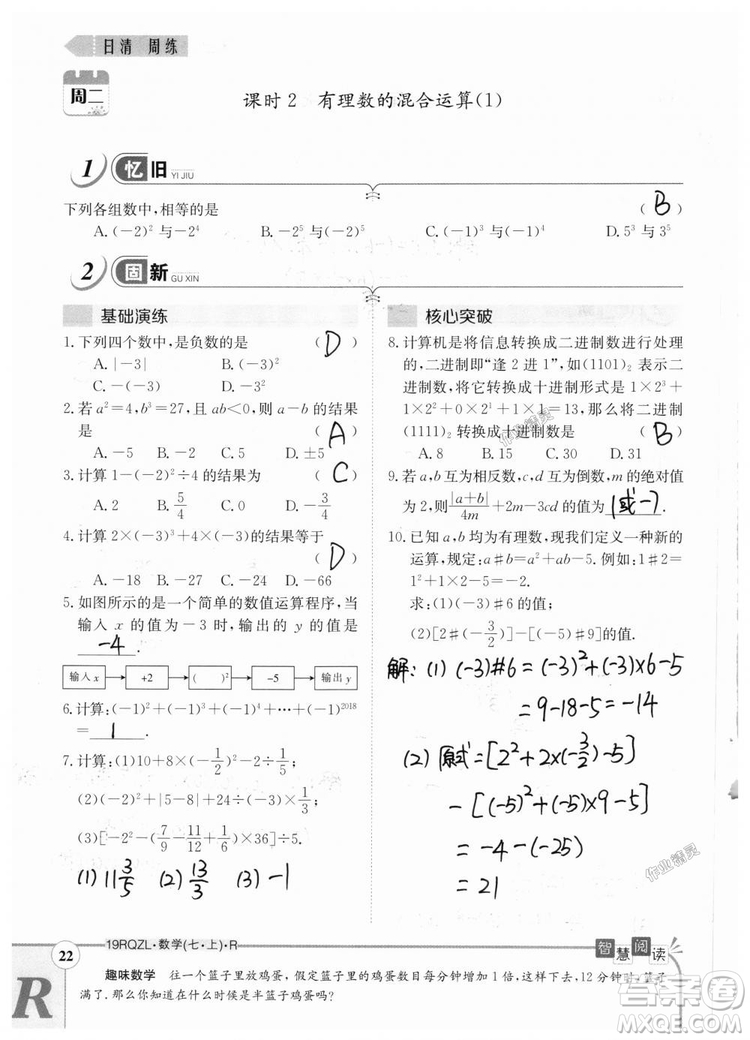 日清 周练
周二
课时2 有理数的混合运算(1)
1 忆旧 YI JIU
下列各组数中,相等的是 ( B )
A. (−2)² 与−2⁴ B. −2⁵ 与(−2)⁵ C. (−1)³ 与(−1)⁴ D. 5³ 与3⁵
2 固新 GU XIN
基础演练
1. 下列四个数中,是负数的是 ( D )
A. |−3| B. (−3)²
C. −(−3) D. −3²
2. 若 a²=4,b³=27,且 ab<0,则 a−b 的结果
是 ( A )
A. −5 B. −2 C. 5 D. ±5
3. 计算 1−(−2)²÷4 的结果为 ( C )
A. 2 B. 5/4 C. 0 D. −3/4
4. 计算 2×(−3)³+4×(−3)的结果等于
( D )
A. −18 B. −27 C. −24 D. −66
5. 如图所示的是一个简单的数值运算程序,当
输入 x 的值为−3时,输出的 y 的值是
−4 .
输入x → +2 → ( )² → −5 → 输出y
6. 计算:(−1)²+(−1)³+(−1)⁴+…+(−1)²⁰¹⁸
= 1 .
7. 计算:(1)10+8×(−1/2)²−2÷1/5;
(2)(−2)²×|5−8|+24÷(−3)×1/3;
(3)[−2²−(7/9−11/12+1/6)×36]÷5.
(1) 11 3/5 (2) 13/3 (3) −1
核心突破
8. 计算机是将信息转换成二进制数进行处理
的,二进制即“逢2进1”,如(1101)₂ 表示二
进制数,将它转换成十进制形式是 1×2³+
1×2²+0×2¹+1×1=13,那么将二进制
(1111)₂ 转换成十进制数是 ( B )
A. 8 B. 15 C. 30 D. 31
9. 若 a,b 互为相反数,c,d 互为倒数,m 的绝对值
为2,则|a+b|/4m+2m−3cd 的值为 1或−7 .
10. 已知 a,b 均为有理数,现我们定义一种新的
运算,规定:a♯b=a²+ab−5,例如:1♯2=
1²+1×2−5=−2.
求:(1)(−3)♯6 的值;
(2)[2♯(−3/2)]−[(−5)♯9]的值.
解: (1) (−3)#6=(−3)²+(−3)×6−5
=9−18−5=−14
(2) 原式=[2²+2×(−3/2)−5]
−[(−5)²+(−5)×9−5]
=−4−(−25)
=21
22 19RQZL·数学(七·上)·R 智慧阅读
趣味数学 往一个篮子里放鸡蛋,假定篮子里的鸡蛋数目每分钟增加1倍,这样下去,12分钟时,篮子
满了.那么你知道在什么时候是半篮子鸡蛋吗?
R
作业精灵
作业精灵
答案圈
MXQE.COM